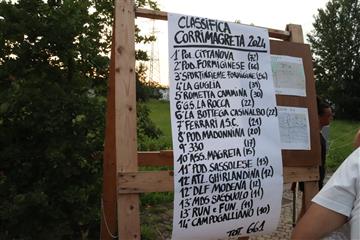 CLASSIFICA
CORRIMAGRETA 2024
1° POL. CITTANOVA (72)
2° POD. FORMIGINESE (66)
3° SPORTINSIEME FORMIGINE (54)
4° LA GUGLIA (39)
5° ROMETTA CAMMINA (30)
6° GS. LA ROCCA (22)
6° LA BOTTEGA CASINALBO (22)
7° FERRARI A.S.C. (21)
8° POD. MADONNINA (20)
9° 330 (17)
10° ASS. MAGRETA (15)
11° POD. SASSOLESE (13)
12° ATL. GHIRLANDINA (12)
12° DLF MODENA (12)
13° MDS SASSUOLO (11)
13° RUN e FUN. (11)
14° CAMPOGALLIANO (10)
TOT. 661